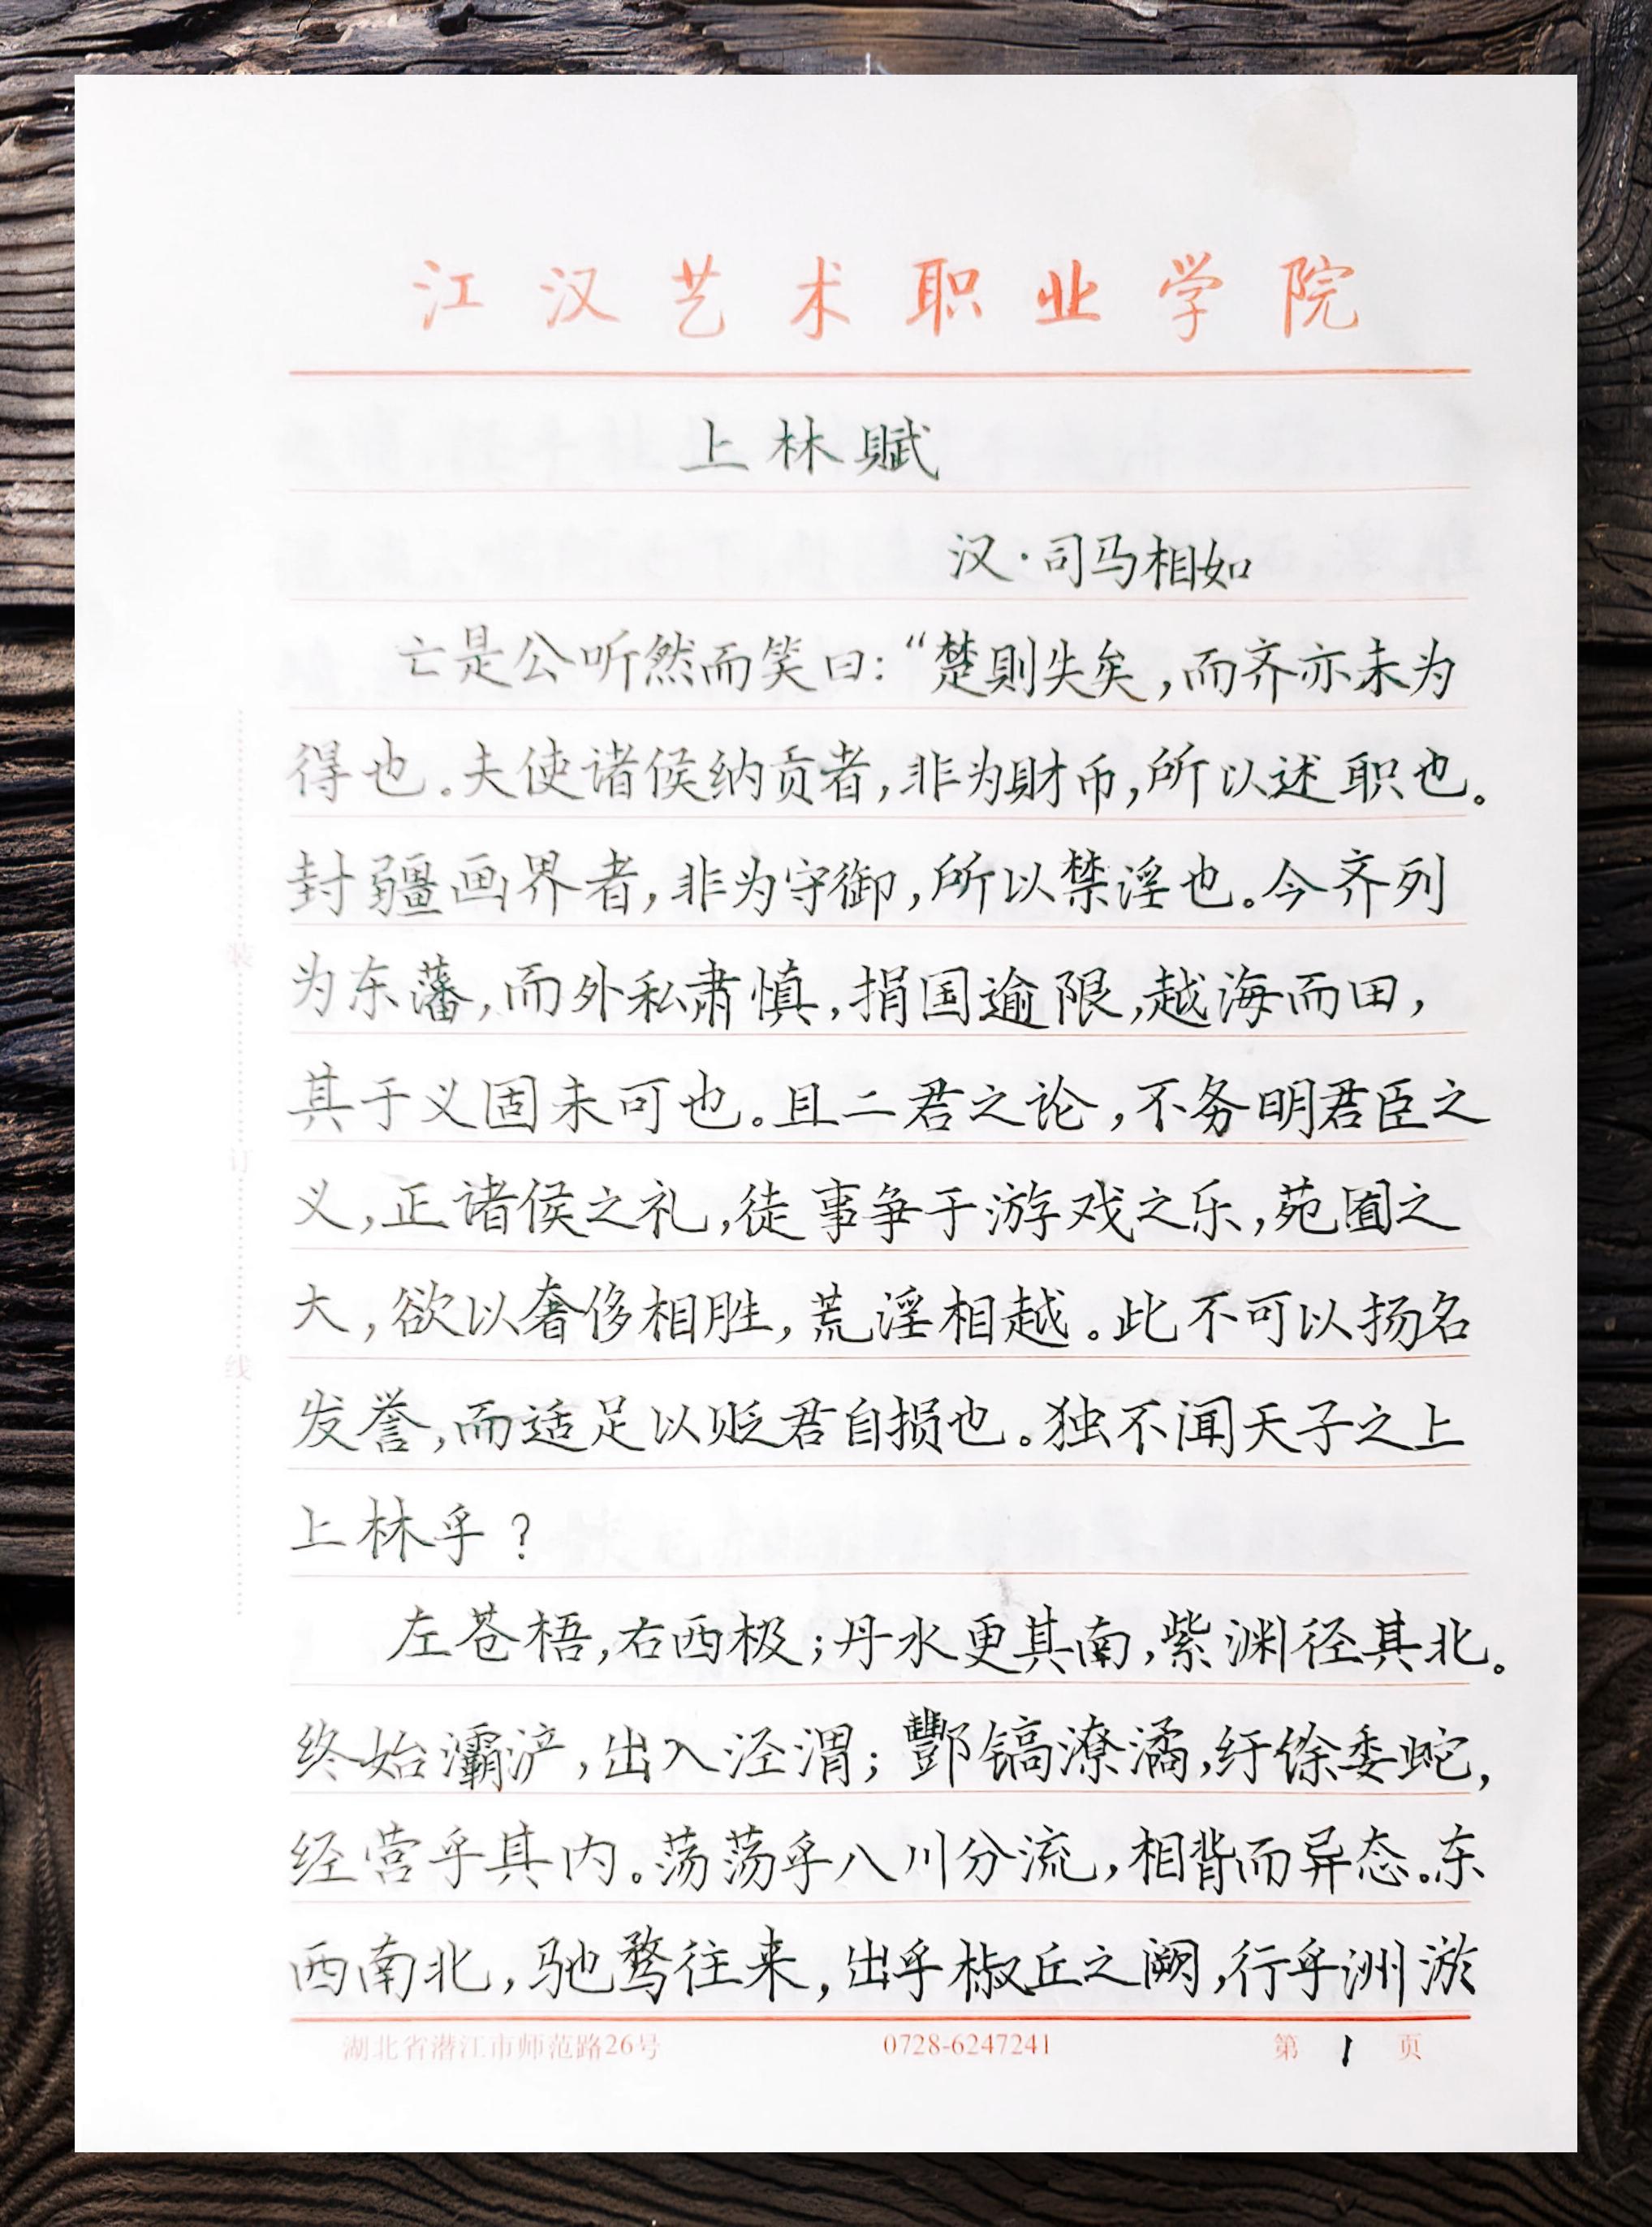 江汉艺术职业学院
上林赋
汉·司马相如
亡是公听然而笑曰：“楚则失矣，而齐亦未为
得也。夫使诸侯纳贡者，非为财币，所以述职也。
封疆画界者，非为守御，所以禁淫也。今齐列
为东藩，而外私肃慎，捐国逾限，越海而田，
其于义固未可也。且二君之论，不务明君臣之
义，正诸侯之礼，徒事争于游戏之乐，苑囿之
大，欲以奢侈相胜，荒淫相越。此不可以扬名
发誉，而适足以贬君自损也。独不闻天子之上
上林乎？
左苍梧，右西极；丹水更其南，紫渊径其北。
终始灞浐，出入泾渭；酆镐潦潏，纡馀委蛇，
经营乎其内。荡荡乎八川分流，相背而异态。东
西南北，驰骛往来，出乎椒丘之阙，行乎洲淤
湖北省潜江市师范路26号 0728-6247241 第 1 页
装
订
线